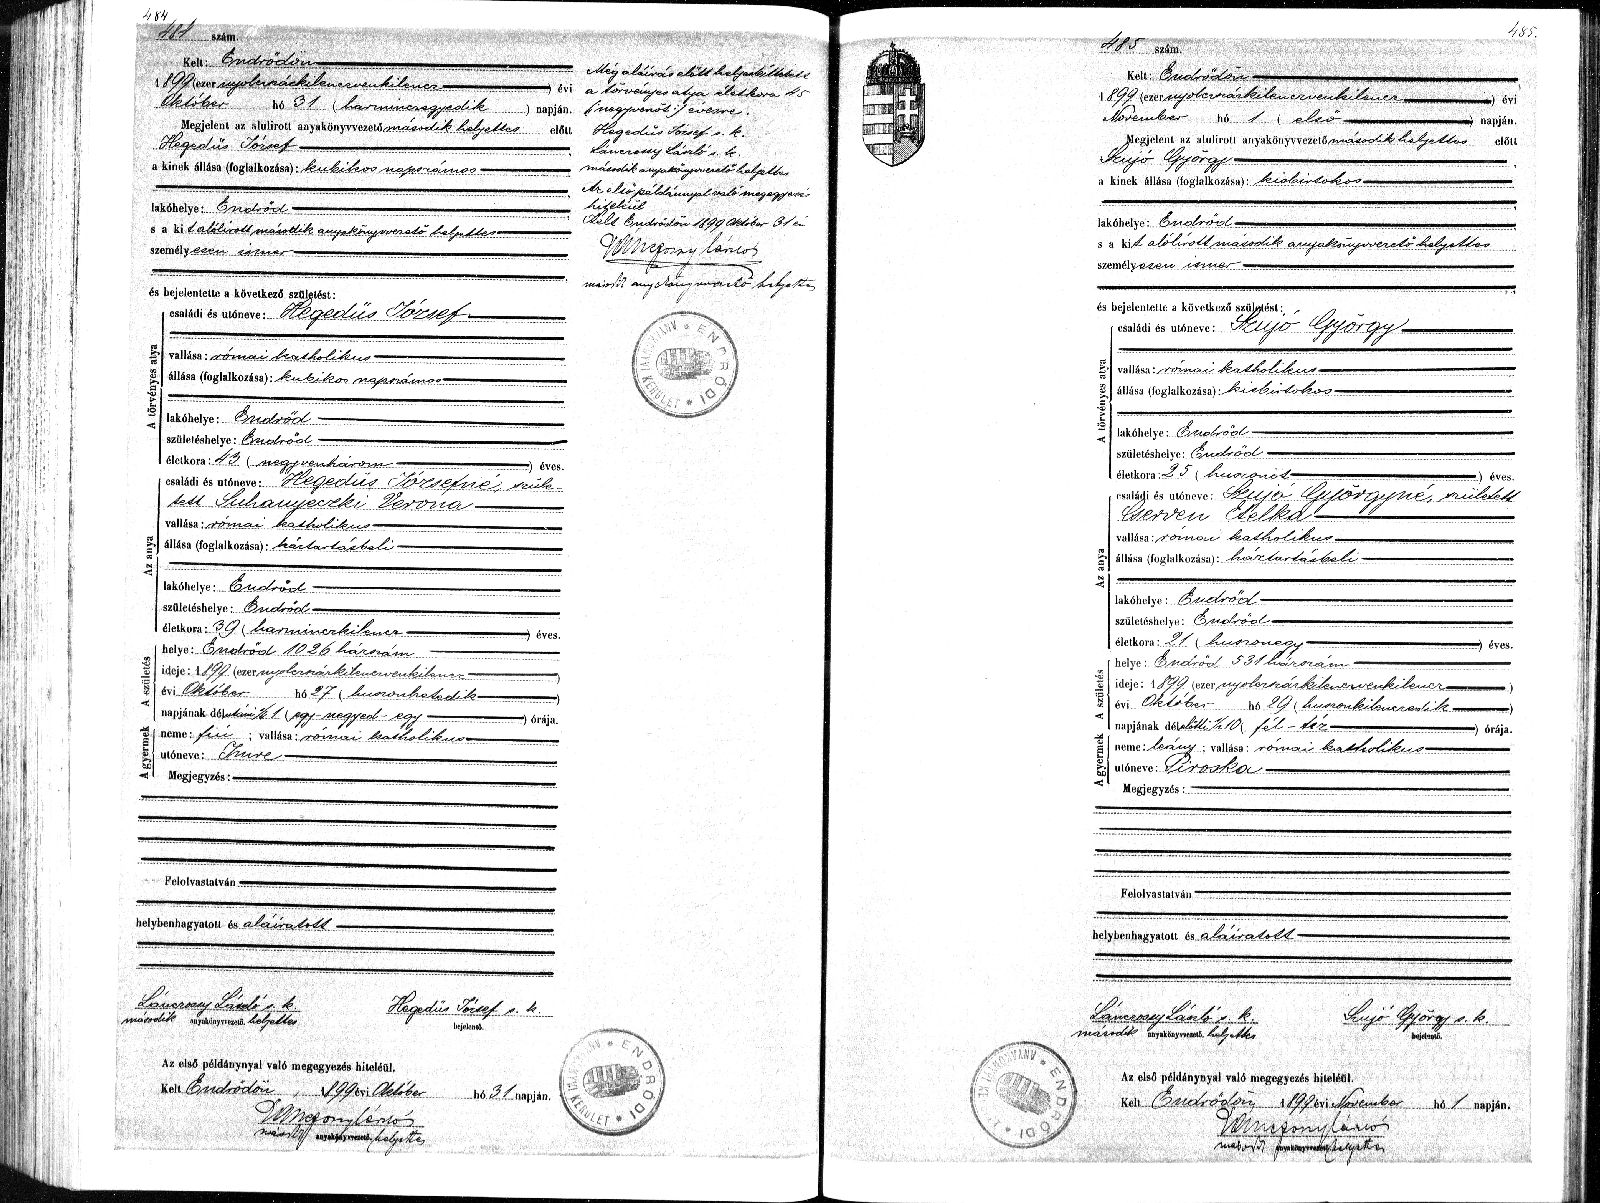 484
484 szám.
Kelt: Endrődön
1899 (ezer nyolczszázkilenczvenkilencz ) évi
Október hó 31 ( harminczegyedik ) napján.
Megjelent az alulirott anyakönyvvezető második helyettes előtt
Hegedüs József
a kinek állása (foglalkozása): kubikos napszámos
lakóhelye: Endrőd
s a kit alólirott második anyakönyvvezető helyettes
személyesen ismer
és bejelentette a következő születést:
A törvényes atya
családi és utóneve: Hegedüs József
vallása: római katholikus
állása (foglalkozása): kubikos napszámos
lakóhelye: Endrőd
születéshelye: Endrőd
életkora: 43 ( negyvenhárom ) éves.
Az anya
családi és utóneve: Hegedüs Józsefné, szüle-
tett Suhanyeczki Verona
vallása: római katholikus
állása (foglalkozása): háztartásbeli
lakóhelye: Endrőd
születéshelye: Endrőd
életkora: 39 ( harminczkilencz ) éves.
A születés
helye: Endrőd 1026 házszám
ideje: 1899 (ezer nyolczszázkilenczvenkilencz )
évi Október hó 27 ( huszonhetedik )
napjának délutáni 1/4 1 ( egy negyed - egy ) órája.
A gyermek
neme: fiú ; vallása: római katholikus
utóneve: Imre
Megjegyzés:
Felolvastatván
helybenhagyatott és aláiratott
Lánczossy László s. k. Hegedüs József s. k.
második anyakönyvvezető. helyettes bejelentő.
Az első példánynyal való megegyezés hiteléül.
Kelt Endrődön, 1899 évi Október hó 31 napján.
anyakönyvvezető. helyettes
Még aláirás előtt helyesbittetett
a törvényes atya életkora 45
(negyvenöt:) évesre.
Hegedüs József s. k.
Lánczossy László s. k.
második anyakönyvvezető helyettes
Az első példánynyal való megegyezés
hiteléül
Kelt Endrődön 1899 Október 31 én
másod anyakönyvvezető helyettes
ENDRŐDI ANYAKÖNYVI KERÜLET
ENDRŐDI ANYAKÖNYVI KERÜLET
485.
485 szám.
Kelt: Endrődön
1899 (ezer nyolczszázkilenczvenkilencz ) évi
November hó 1 ( első ) napján.
Megjelent az alulirott anyakönyvvezető második helyettes előtt
Szujó György
a kinek állása (foglalkozása): kisbirtokos
lakóhelye: Endrőd
s a kit alólirott második anyakönyvvezető helyettes
személyesen ismer
és bejelentette a következő születést:
A törvényes atya
családi és utóneve: Szujó György
vallása: római katholikus
állása (foglalkozása): kisbirtokos
lakóhelye: Endrőd
születéshelye: Endrőd
életkora: 25 ( huszonöt ) éves.
Az anya
családi és utóneve: Szujó Györgyné, született
Cserven Etelka
vallása: római katholikus
állása (foglalkozása): háztartásbeli
lakóhelye: Endrőd
születéshelye: Endrőd
életkora: 21 ( huszonegy ) éves.
A születés
helye: Endrőd 531 házszám
ideje: 1899 (ezer nyolczszázkilenczvenkilencz )
évi Október hó 29 ( huszonkilenczedik )
napjának délelőtti 1/2 10 ( fél - tíz ) órája.
A gyermek
neme: leány ; vallása: római katholikus
utóneve: Piroska
Megjegyzés:
Felolvastatván
helybenhagyatott és aláiratott
Lánczossy László s. k. Szujó György s. k.
második anyakönyvvezető. helyettes bejelentő.
Az első példánynyal való megegyezés hiteléül.
Kelt Endrődön 1899 évi November hó 1 napján.
másod anyakönyvvezető helyettes
ENDRŐDI ANYAKÖNYVI KERÜLET